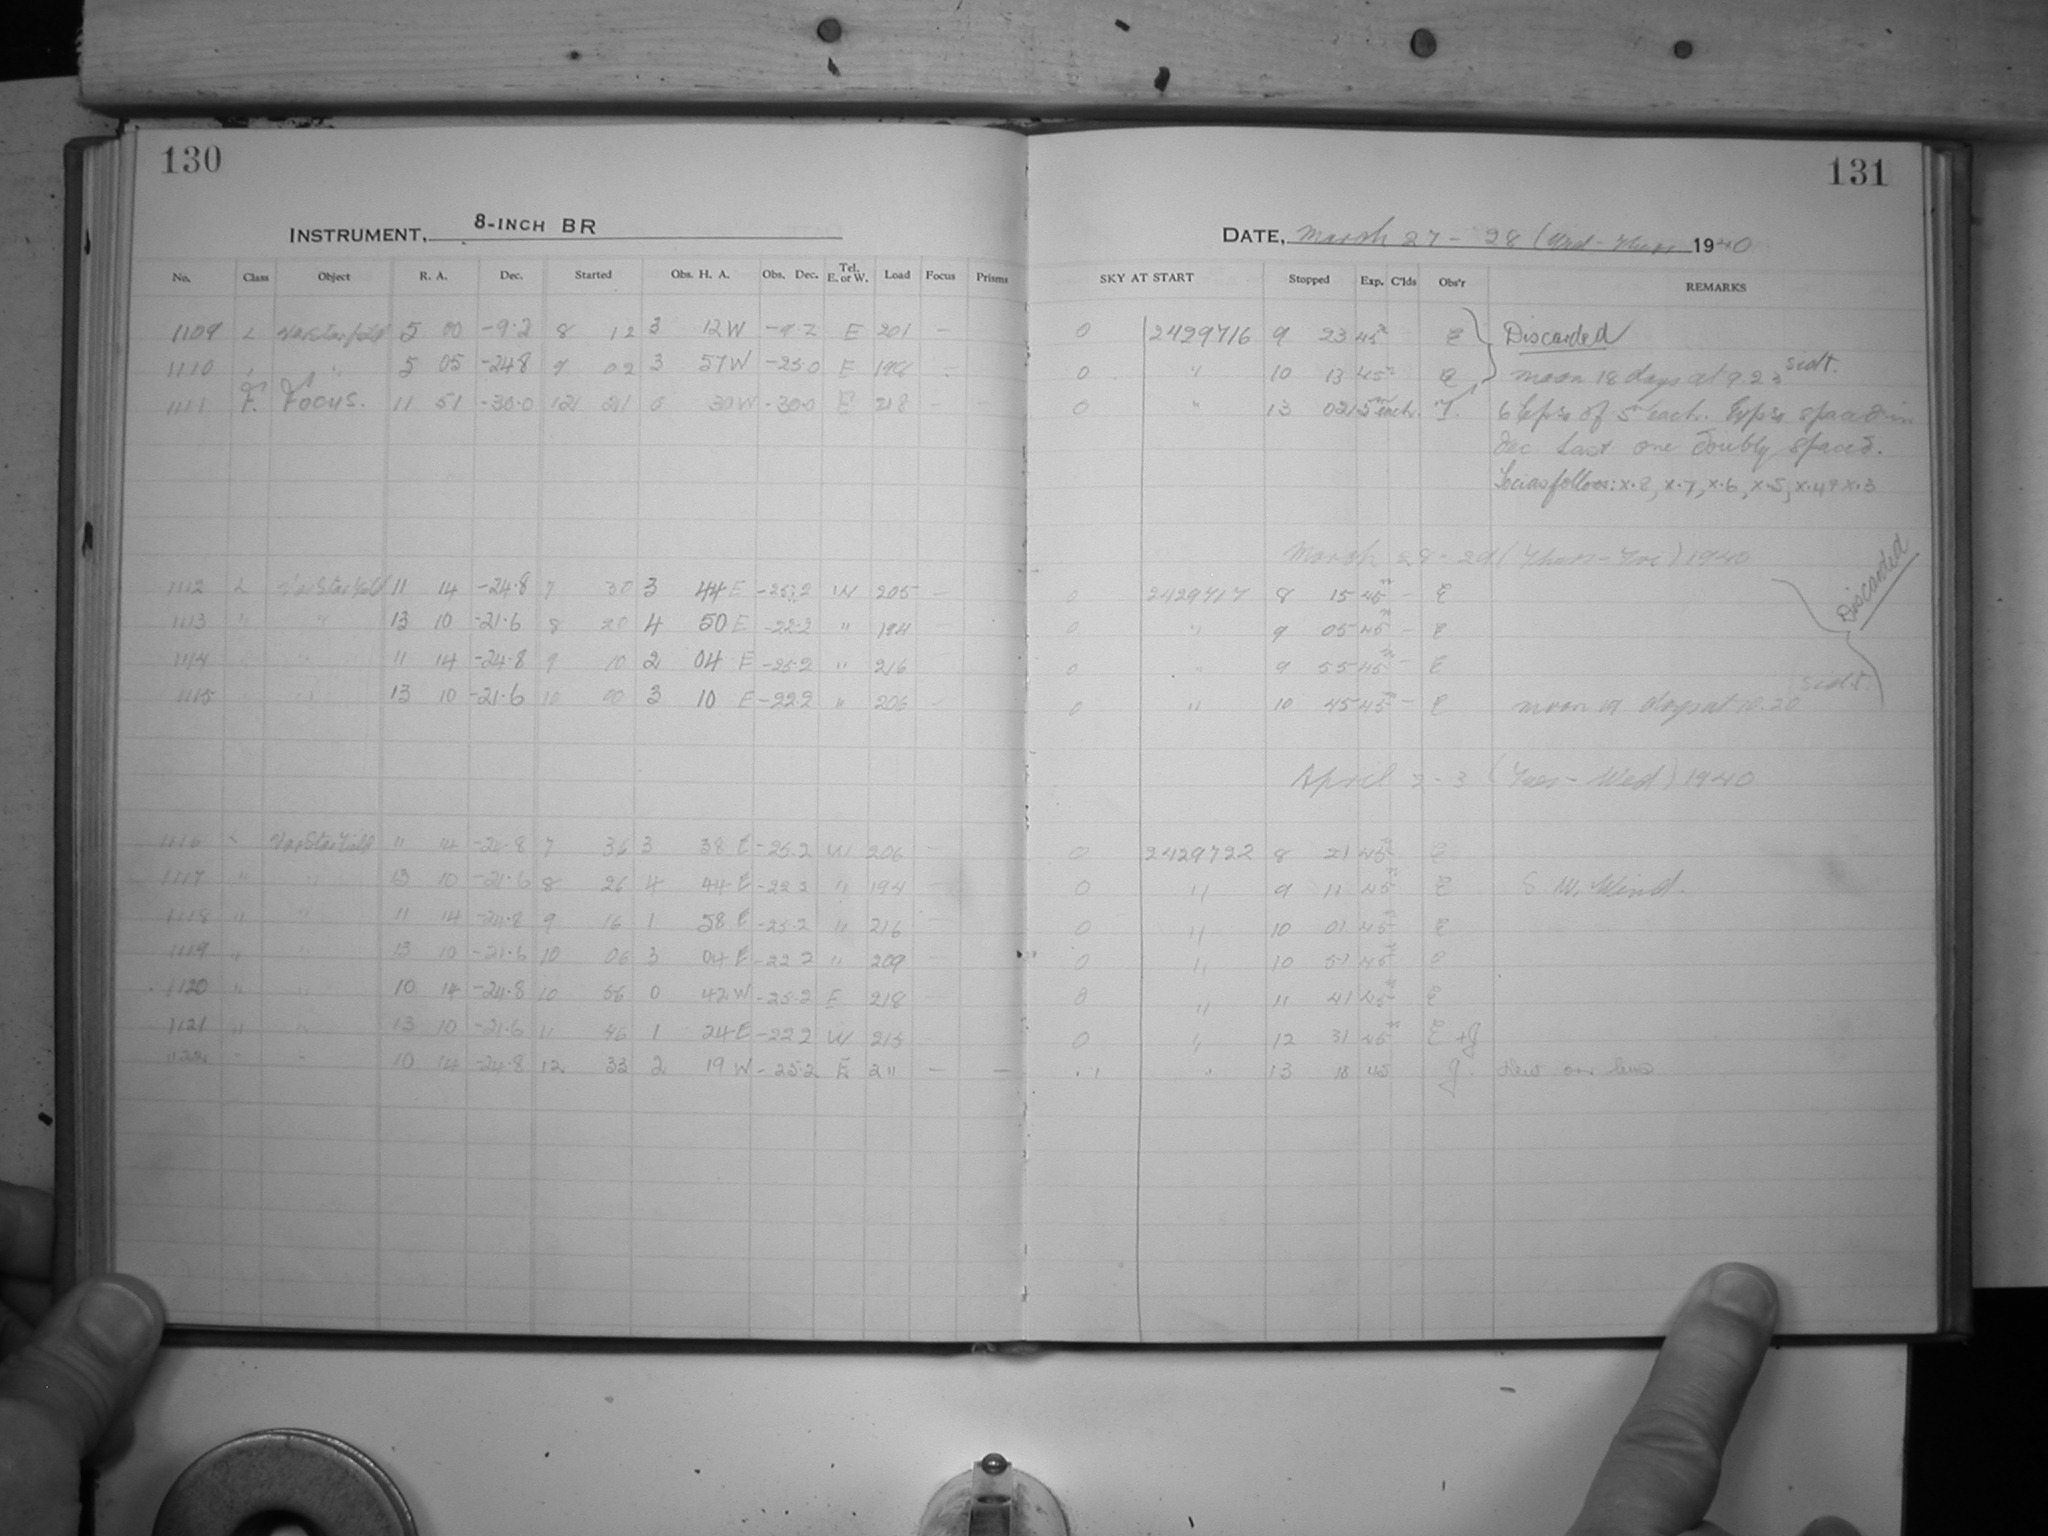 130
INSTRUMENT, 8-INCH BR
No. Class Object R. A. Dec. Started Obs. H. A. Obs. Dec. Tel. E. or W. Load Focus Prisms
1109 L VarStarfield 5 00 -9.2 8 12 3 12 W -9.2 E 201 —
1110 " " 5 05 -24.8 9 02 3 57 W -25.0 E 198 —
1111 F. Focus. 11 51 -30.0 12 21 0 30 W -30.0 E 218 — —
1112 L VarStarfield 11 14 -24.8 7 30 3 44 E -25.2 W 205 —
1113 " " 13 10 -21.6 8 20 4 50 E -22.2 " 194
1114 " " 11 14 -24.8 9 10 2 04 E -25.2 " 216
1115 " " 13 10 -21.6 10 00 3 10 E -22.2 " 206
1116 L VarStarfield 11 14 -24.8 7 36 3 38 E -25.2 W 206
1117 " " 13 10 -21.6 8 26 4 44 E -22.2 " 194
1118 " " 11 14 -24.8 9 16 1 58 E -25.2 " 216
1119 " " 13 10 -21.6 10 06 3 04 E -22.2 " 209
1120 " " 10 14 -24.8 10 56 0 42 W -25.2 E 218
1121 " " 13 10 -21.6 11 46 1 24 E -22.2 W 215
1122 " " 10 14 -24.8 12 33 2 19 W -25.2 E 211 — —
131
DATE, March 27-28 (Wed-Thurs 1940
SKY AT START Stopped Exp. C'lds Obs'r REMARKS
0 2429716 9 23 45m E Discarded
0 " 10 13 45m E moon 18 days at 9.23 scdt.
0 " 13 02 5m each. J. 6 Exps of 5m each. Exps spaced in
dec Last one doubly spaced.
Foci as follows: x.8, x.7, x.6, x.5, x.4 & x.3
March 28-29 (Thurs-Fri) 1940
0 2429717 8 15 45m — E Discarded
0 " 9 05 45m — E
0 " 9 55 45m — E
0 " 10 45 45m — E moon 19 days at 10.20 scdt.
April 2-3 (Tues-Wed) 1940
0 2429722 8 21 45m E
0 " 9 11 45m E S W. Wind.
0 " 10 01 45m E
0 " 10 51 45m E
0 " 11 41 45m E
0 " 12 31 45m E + J
" 13 18 45 J. Dew on lens